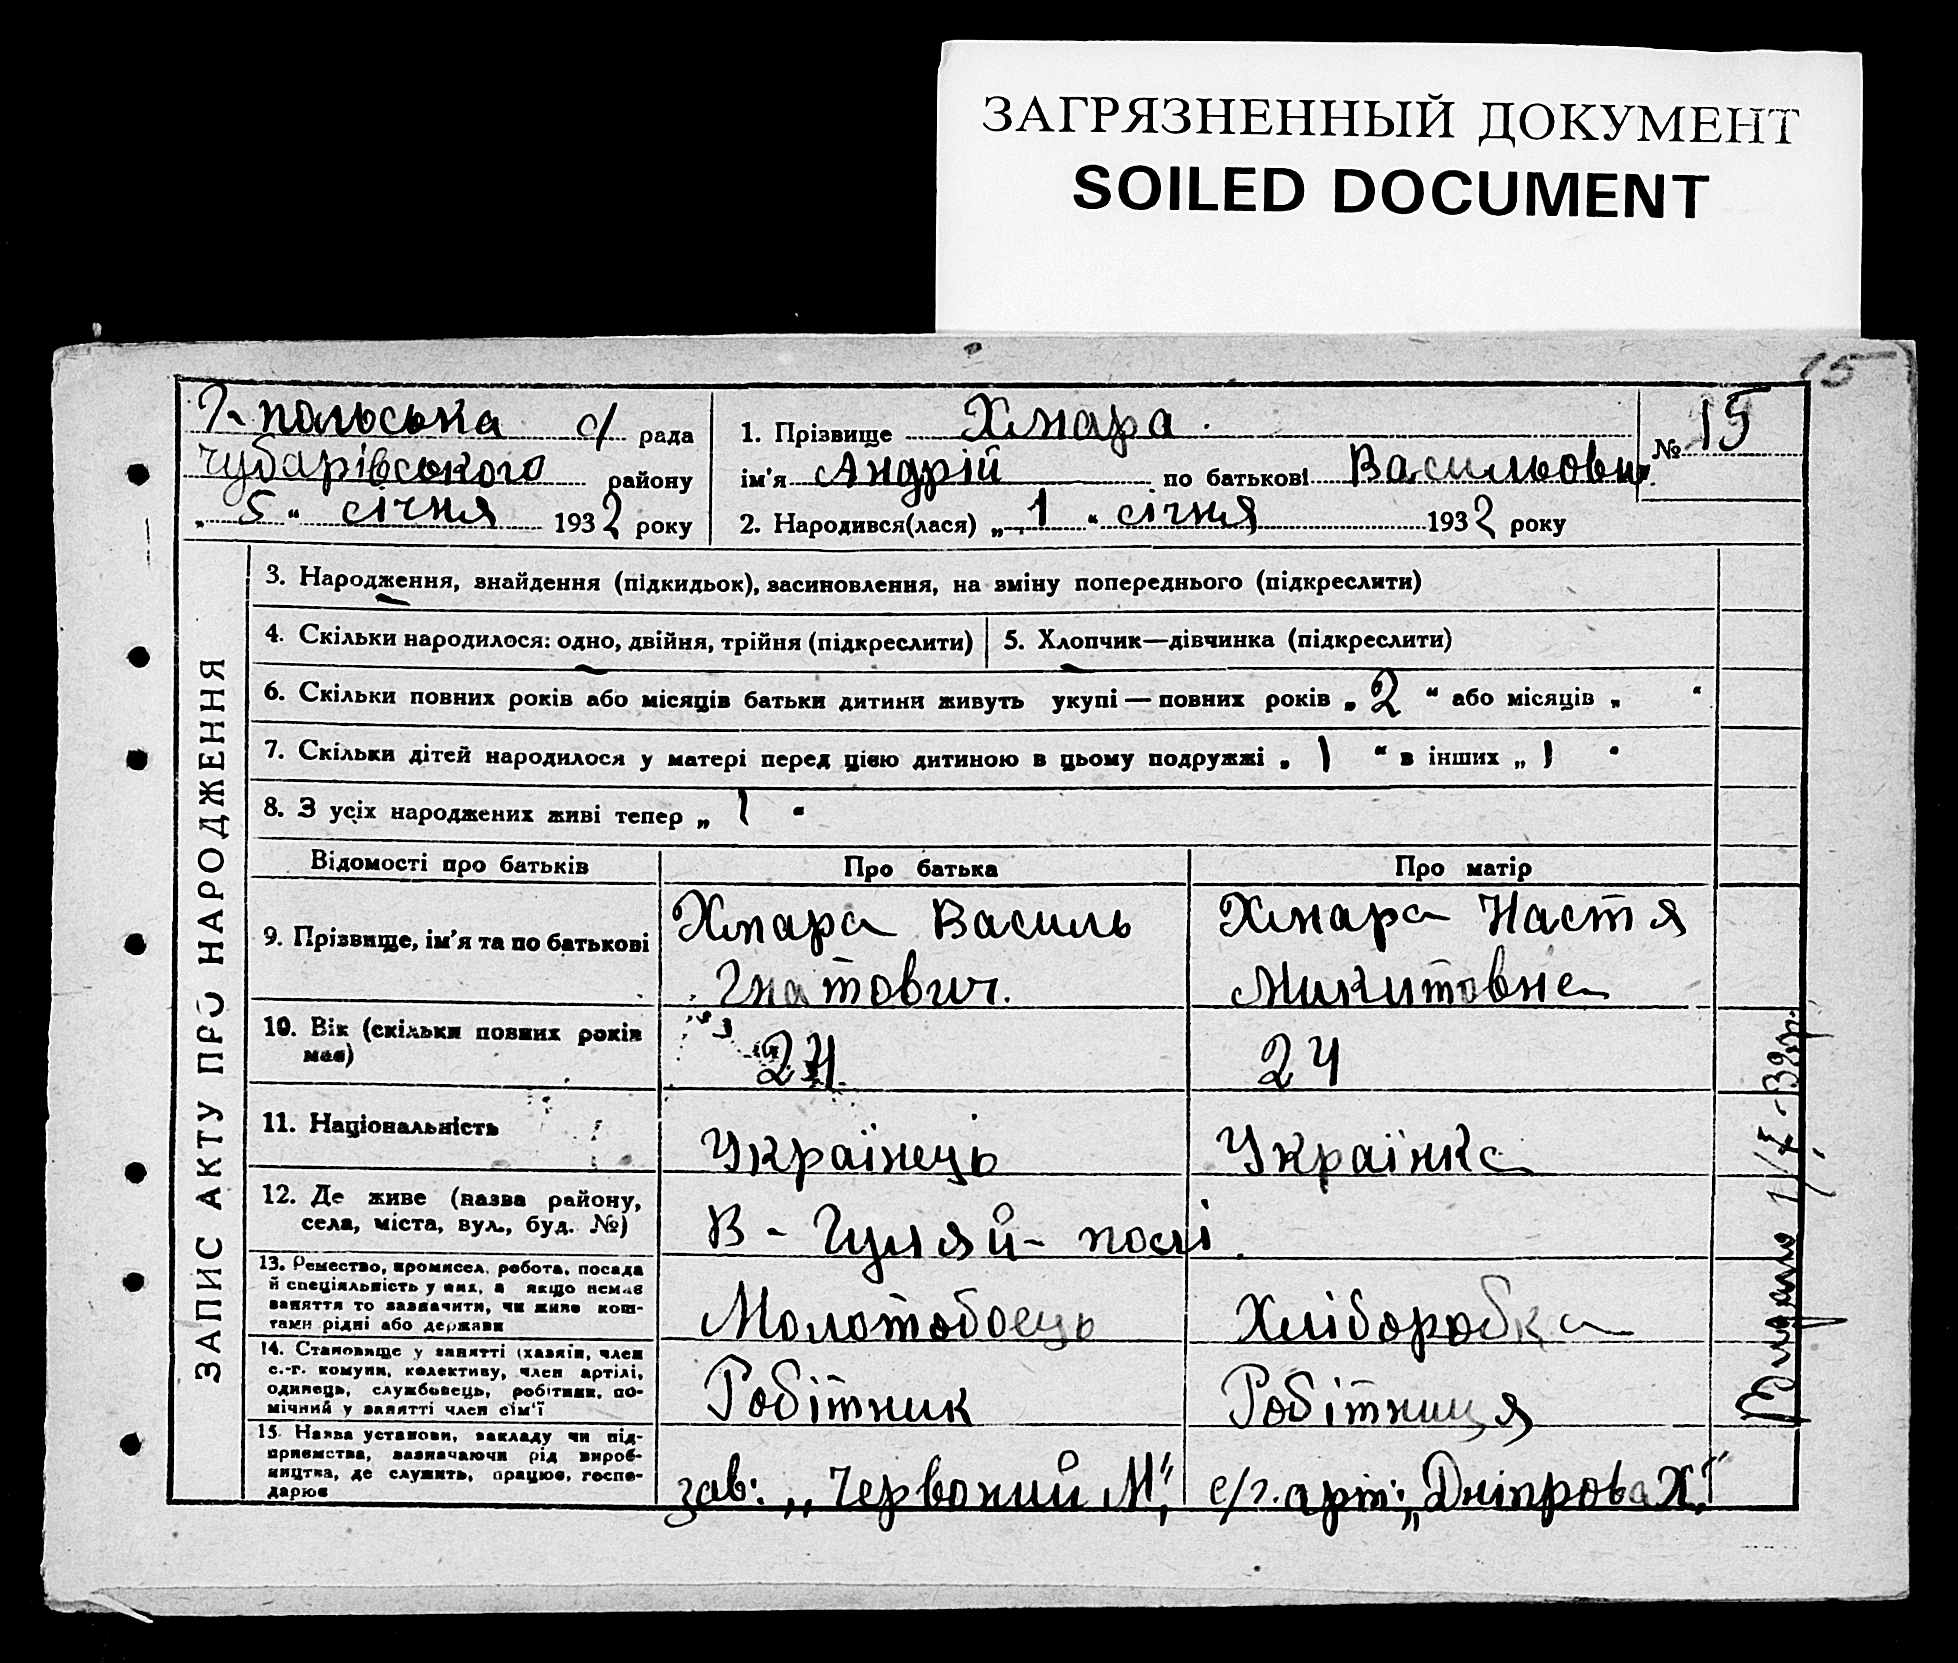 ЗАГРЯЗНЕННЫЙ ДОКУМЕНТ
SOILED DOCUMENT
15
Г-польська с/ рада
Чубарівського району
„ 5 “ січня 1932 року
1. Прізвище Хмара
№ 15
ім'я Андрій по батькові Васильович
2. Народився(лася) „ 1 “ січня 1932 року
ЗАПИС АКТУ ПРО НАРОДЖЕННЯ
3. Народження, знайдення (підкидьок), засиновлення, на зміну попереднього (підкреслити)
4. Скільки народилося: одно, двійня, трійня (підкреслити)
5. Хлопчик—дівчинка (підкреслити)
6. Скільки повних років або місяців батьки дитини живуть укупі — повних років „ 2 “ або місяців „ “
7. Скільки дітей народилося у матері перед цією дитиною в цьому подружжі „ 1 “ в інших „ 1 “
8. З усіх народжених живі тепер „ 1 “
Відомості про батьків
Про батька
Про матір
9. Прізвище, ім'я та по батькові
Хмара Василь
Гнатович.
Хмара Настя
Микитовна
10. Вік (скільки повних років
має)
24
24
11. Національність
Українець
Українка
12. Де живе (назва району,
села, міста, вул., буд. №)
В-Гуляй-полі
13. Ремество, промисел, робота, посада
й спеціяльність у них, а якщо немає
заняття то зазначити, чи живе кош-
тами рідні або держави
Молотобоець
Хліборобка
14. Становище у занятті (хазяїн, член
с.-г. комуни, колективу, член артілі,
одинець, службовець, робітник, по-
мічний у занятті член сім'ї
Робітник
Робітниця
15. Назва установи, закладу чи під-
приємства, зазначаючи рід вироб-
ництва, де служить, працює, госпо-
дарює
зав: „Червоний М“,
с/г. арт: „Дніпрова Х.“